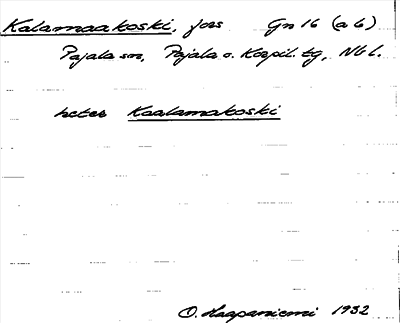 Kalamaakoski, fors Gn 16 (a b)
Pajala sn, Pajala o. Korpil. tg, Nbl.
heter Kaalamakoski
O. Haapaniemi 1932